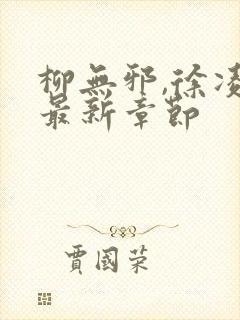 柳無邪,徐凌
最新章節
賈國荣